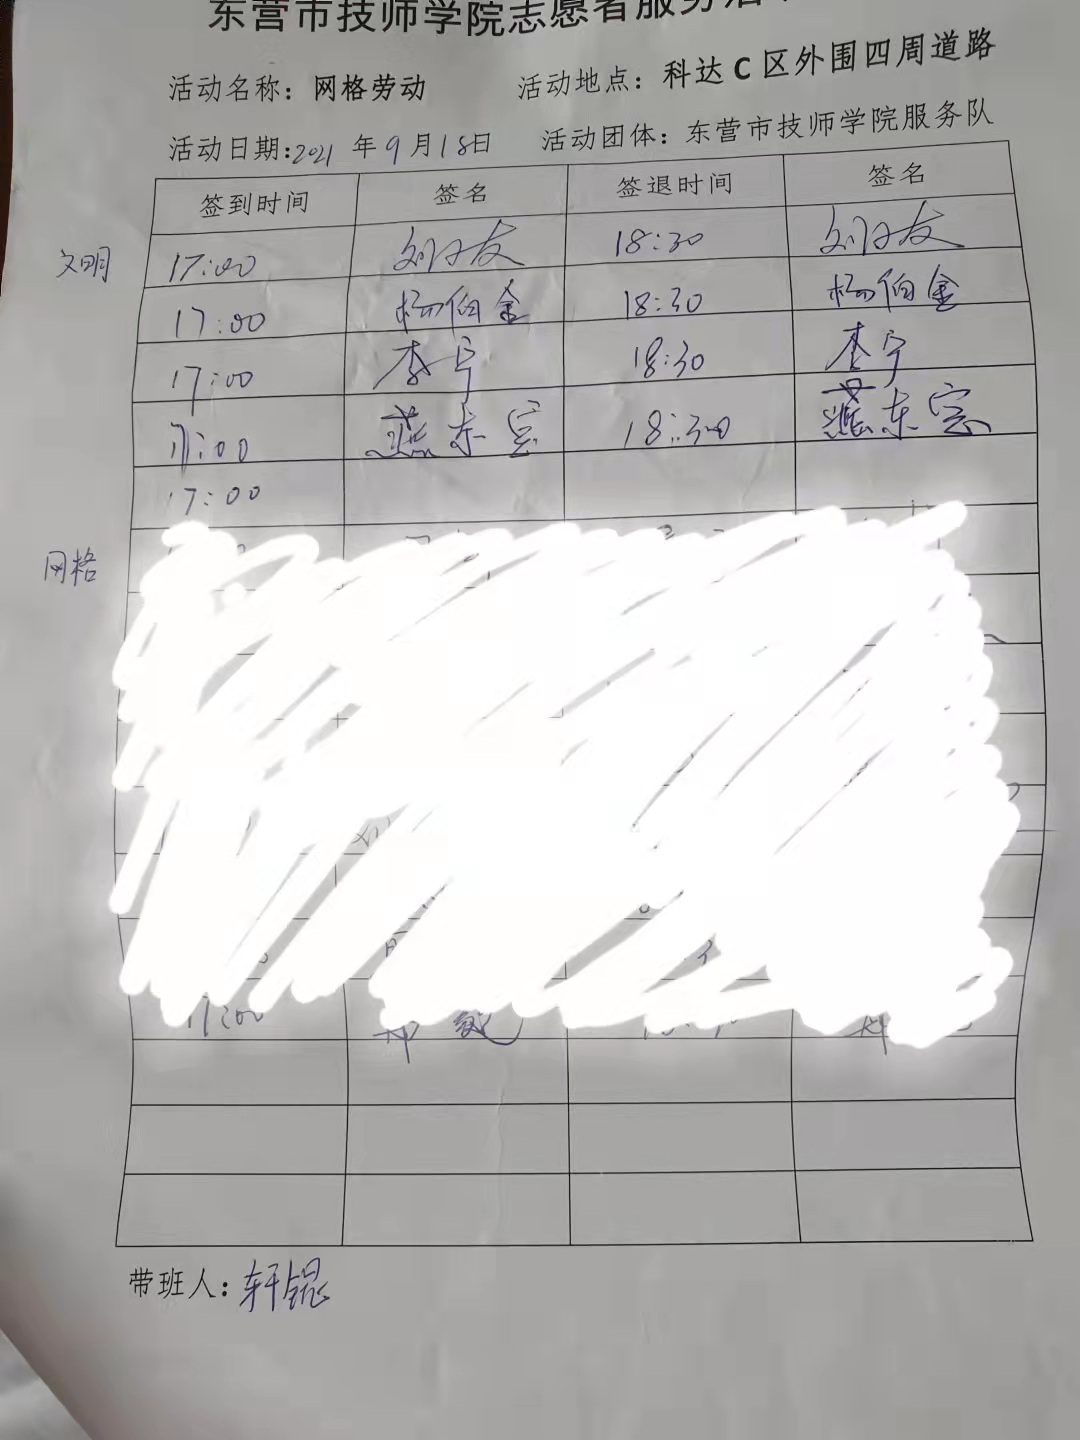 东营市技师学院志愿者服务活
活动名称：网格劳动 活动地点：科达C区外围四周道路
活动日期：2021年9月18日 活动团体：东营市技师学院服务队
签到时间 签名 签退时间 签名
文明 17:00 18:30
17:00 杨伯金 18:30 杨伯金
17:00 李宁 18:30 李宁
17:00 燕东宗 18:30 燕东宗
17:00
网格
17:00
带班人：轩锟